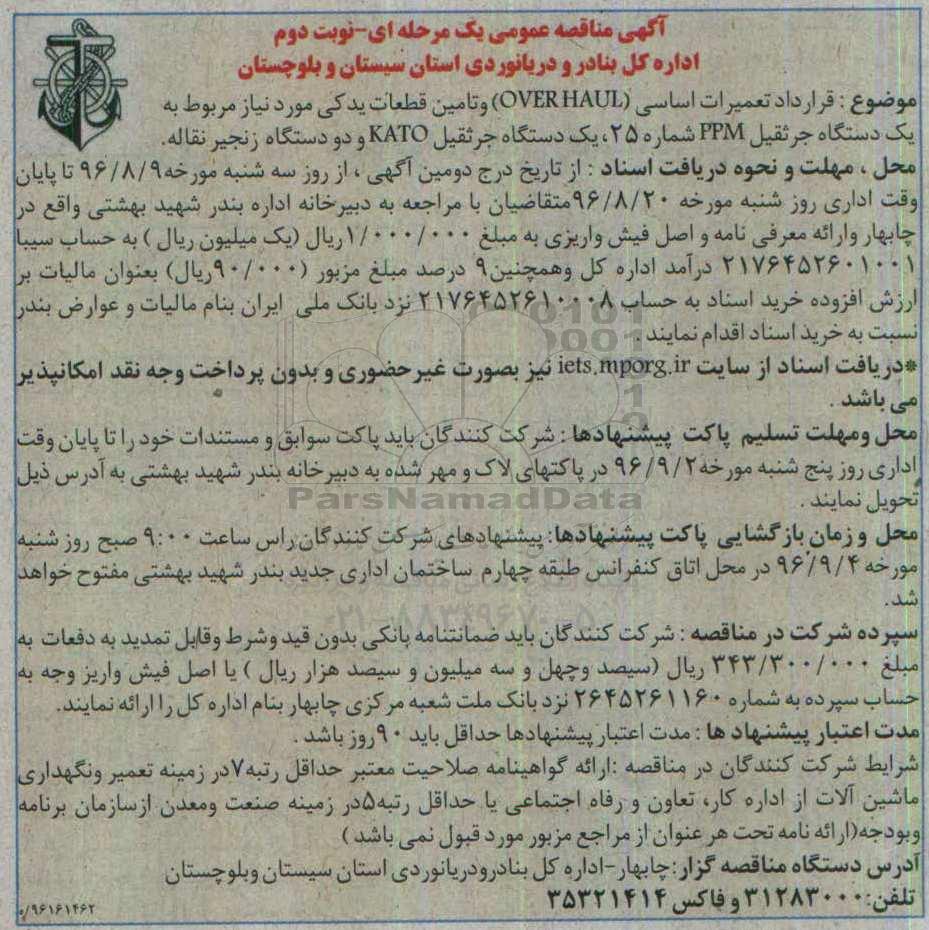 آگهی مناقصه عمومی یک مرحله ای-نوبت دوم
اداره کل بنادر و دریانوردی استان سیستان و بلوچستان
موضوع : قرارداد تعمیرات اساسی (OVER HAUL) وتامین قطعات یدکی مورد نیاز مربوط به
یک دستگاه جرثقیل PPM شماره ۲۵، یک دستگاه جرثقیل KATO و دو دستگاه زنجیر نقاله.
محل ، مهلت و نحوه دریافت اسناد : از تاریخ درج دومین آگهی ، از روز سه شنبه مورخه ۹۶/۸/۹ تا پایان
وقت اداری روز شنبه مورخه ۹۶/۸/۲۰ متقاضیان با مراجعه به دبیرخانه اداره بندر شهید بهشتی واقع در
چابهار وارائه معرفی نامه و اصل فیش واریزی به مبلغ ۱/۰۰۰/۰۰۰ریال (یک میلیون ریال ) به حساب سیبا
۲۱۷۶۴۵۲۶۰۱۰۰۱ درآمد اداره کل وهمچنین۹ درصد مبلغ مزبور (۹۰/۰۰۰ریال) بعنوان مالیات بر
ارزش افزوده خرید اسناد به حساب ۲۱۷۶۴۵۲۶۱۰۰۰۸ نزد بانک ملی ایران بنام مالیات و عوارض بندر
نسبت به خرید اسناد اقدام نمایند .
*دریافت اسناد از سایت iets.mporg.ir نیز بصورت غیرحضوری و بدون پرداخت وجه نقد امکانپذیر
می باشد .
محل ومهلت تسلیم پاکت پیشنهادها : شرکت کنندگان باید پاکت سوابق و مستندات خود را تا پایان وقت
اداری روز پنج شنبه مورخه۹۶/۹/۲ در پاکتهای لاک و مهر شده به دبیرخانه بندر شهید بهشتی به آدرس ذیل
تحویل نمایند .
ParsNamadData
محل و زمان بازگشایی پاکت پیشنهادها: پیشنهادهای شرکت کنندگان راس ساعت ۹:۰۰ صبح روز شنبه
مورخه ۹۶/۹/۴ در محل اتاق کنفرانس طبقه چهارم ساختمان اداری جدید بندر شهید بهشتی مفتوح خواهد
شد.
سپرده شرکت در مناقصه : شرکت کنندگان باید ضمانتنامه بانکی بدون قید وشرط وقابل تمدید به دفعات به
مبلغ ۳۴۳/۳۰۰/۰۰۰ ریال (سیصد وچهل و سه میلیون و سیصد هزار ریال ) یا اصل فیش واریز وجه به
حساب سپرده به شماره ۲۶۴۵۲۶۱۱۶۰ نزد بانک ملت شعبه مرکزی چابهار بنام اداره کل را ارائه نمایند.
مدت اعتبار پیشنهاد ها : مدت اعتبار پیشنهادها حداقل باید ۹۰روز باشد .
شرایط شرکت کنندگان در مناقصه :ارائه گواهینامه صلاحیت معتبر حداقل رتبه۷در زمینه تعمیر ونگهداری
ماشین آلات از اداره کار، تعاون و رفاه اجتماعی یا حداقل رتبه۵در زمینه صنعت ومعدن ازسازمان برنامه
وبودجه(ارائه نامه تحت هر عنوان از مراجع مزبور مورد قبول نمی باشد )
آدرس دستگاه مناقصه گزار:چابهار-اداره کل بنادرودریانوردی استان سیستان وبلوچستان
تلفن:۳۱۲۸۳۰۰۰ و فاکس ۳۵۳۲۱۴۱۴
۹۶۱۶۱۴۶۲/